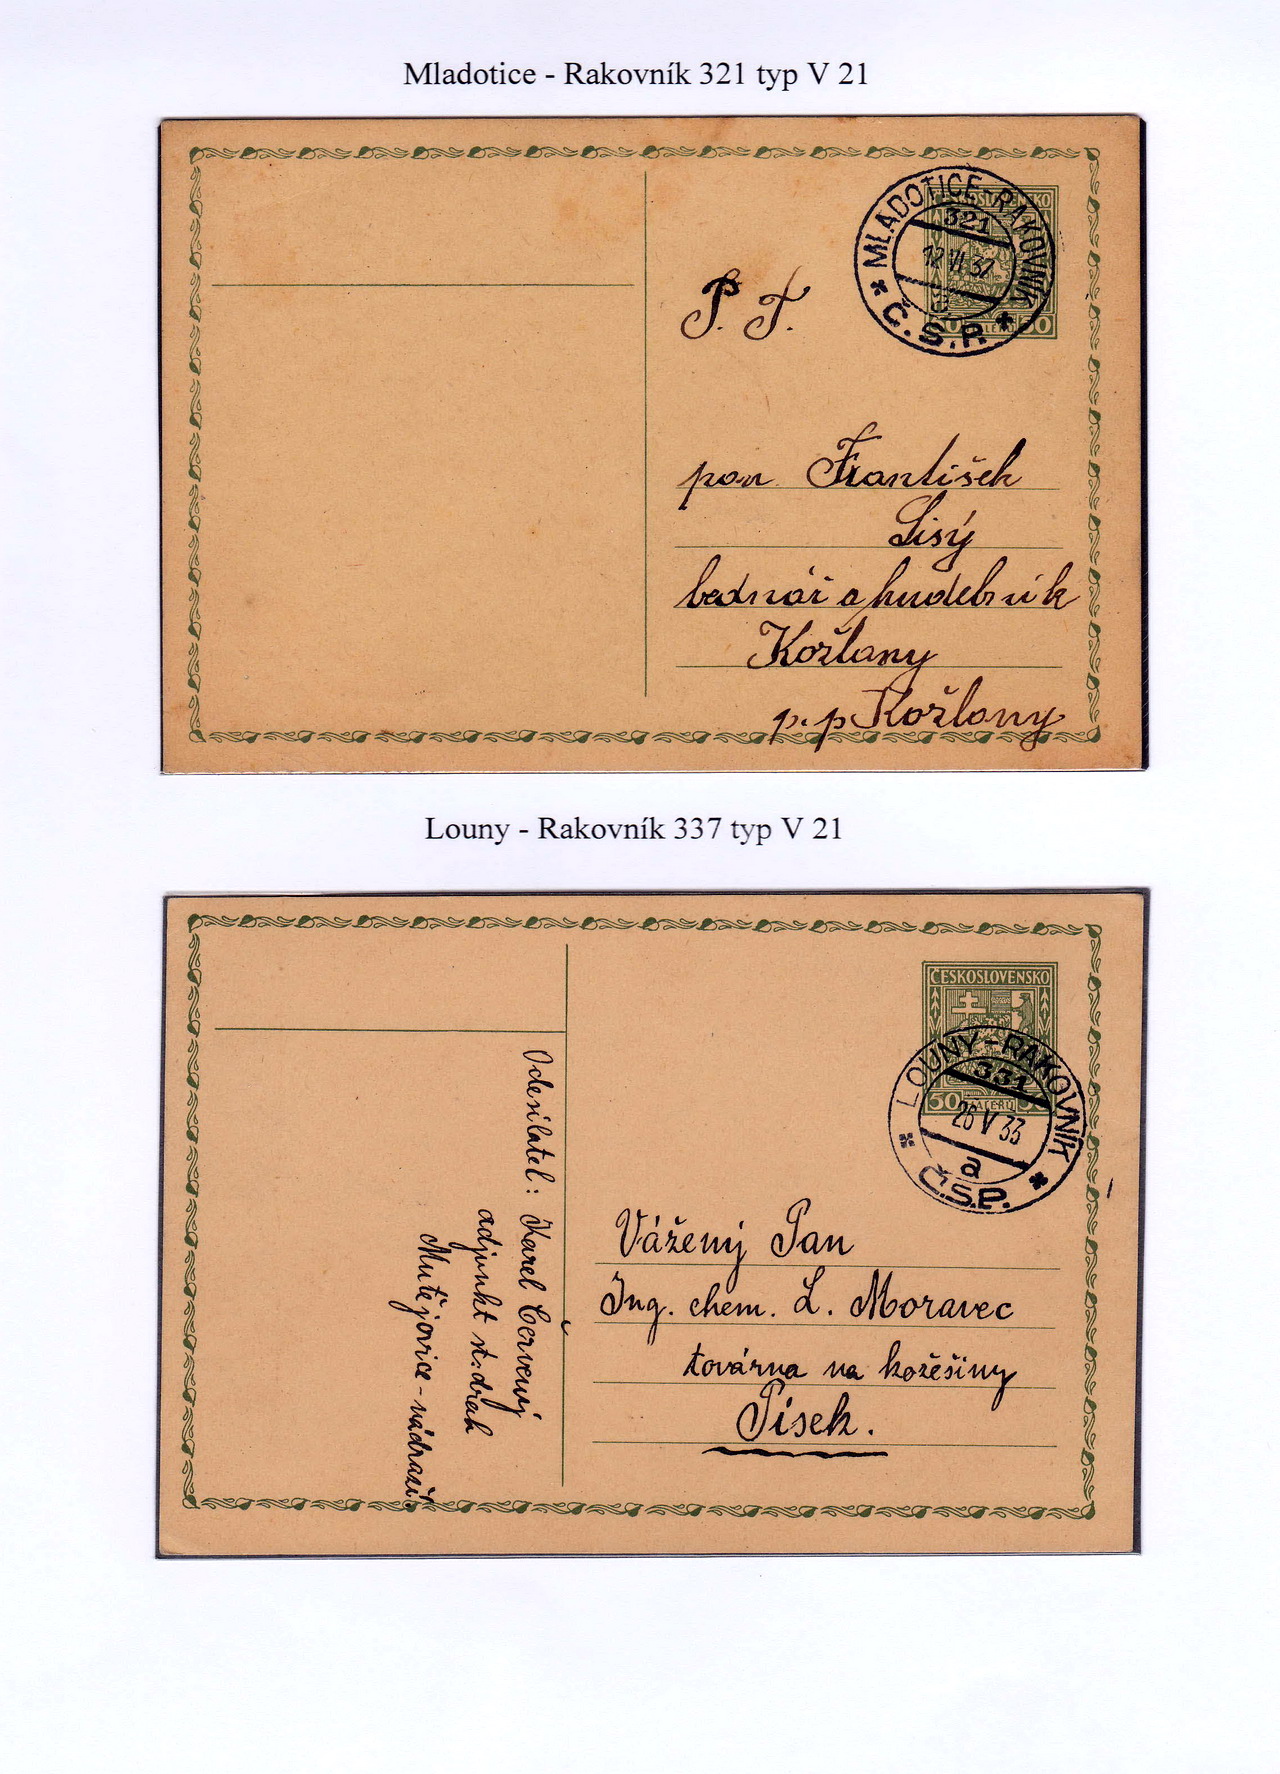 Mladotice - Rakovník 321 typ V 21
ČESKOSLOVENSKO
MLADOTICE-RAKOVNÍK
321
12 VI 37
* Č.S.P. *
50 50
P. T.
pan František
Lisý
bednář a hudebník
Kožlany
p.p Kožlany
Louny - Rakovník 337 typ V 21
ČESKOSLOVENSKO
LOUNY-RAKOVNÍK
331
50 HALÉŘŮ 50
26 V 33
a
* Č.S.P. *
Odesilatel: Karel Červený
adjunkt st. drah
Mutějovice - nádraží
Vážený Pan
Ing. chem. L. Moravec
továrna na kožešiny
Písek.